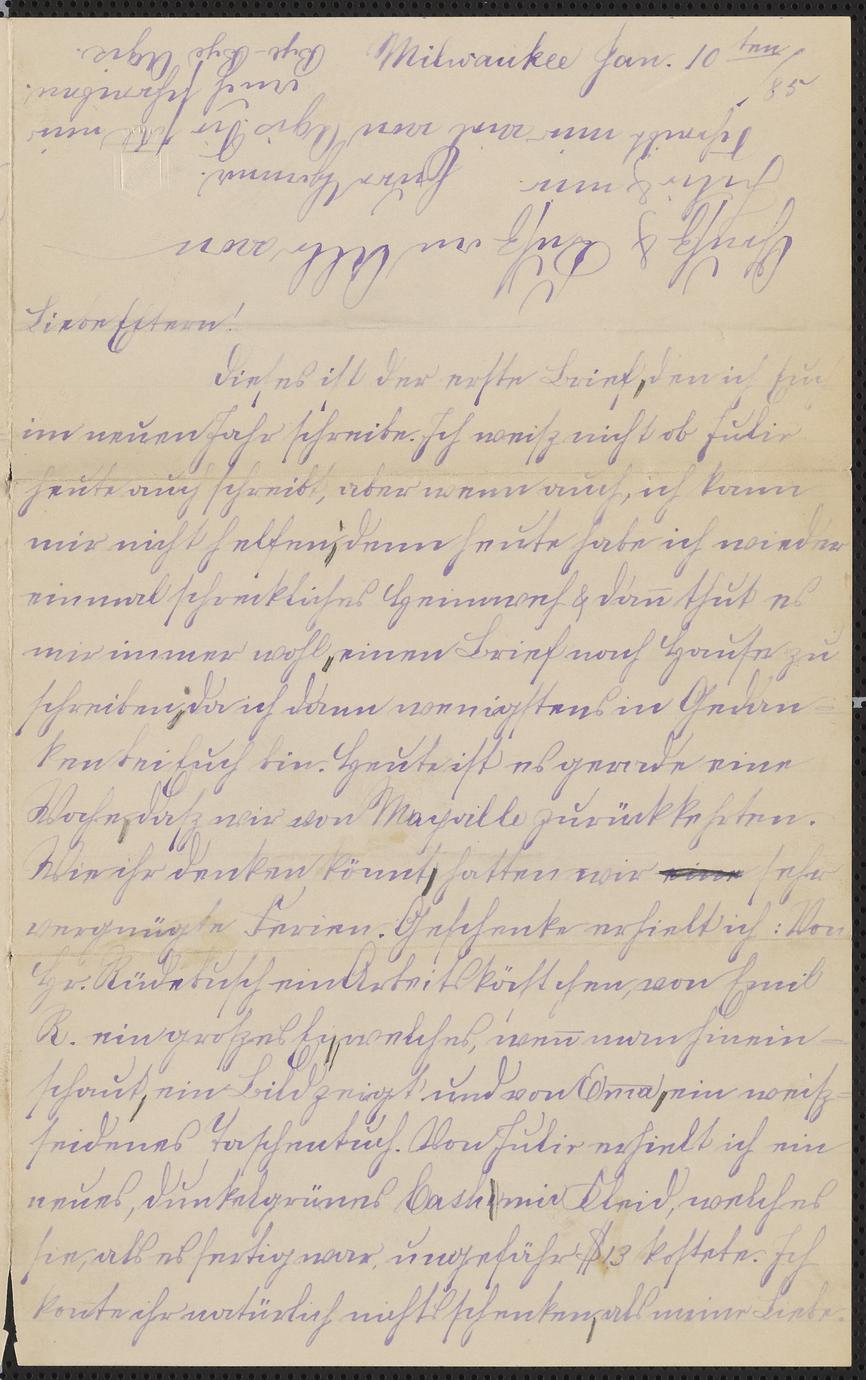 Milwaukee Jan. 10 ten/85
Liebe Eltern!
Dieses ist der erste Brief, den ich Euch
im neuen Jahr schreibe. Ich weiß nicht ob Julie
heute auch schreibt, aber wenn auch, ich kann
mir nicht helfen, denn heute habe ich wieder
einmal schreckliches Heimweh & dan̄ thut es
mir immer wohl, einen Brief nach Hause zu
schreiben, da ich dann wenigstens in Gedan=
ken bei Euch bin. Heute ist es gerade eine
Woche, daß wir von Mayville zurückkehrten.
Wie ihr denken könnt, hatten wir sehr
vergnügte Ferien. Geschenke erhielt ich: Von
Hr. Rüdebusch ein Arbeitskästchen, von Emil
R. ein großes Ey, welches, wen̄ man hinein=
schaut, ein Bild zeigt und von Em̄a, ein weiß=
seidenes Taschentuch. Von Julie erhielt ich ein
neues, dunkelgrünes Cashmir Kleid, welches
sie, als es fertig war, ungefähr $13 kostete. Ich
kon̄te ihr natürlich nichts schenken, als meine Liebe.
Gruß & Kuß an Alle von
Julie & mir. Eure Hanna.
Schreibt mir viel von Agis. Die soll mir
auch schreiben.
Bye-Bye Agis.